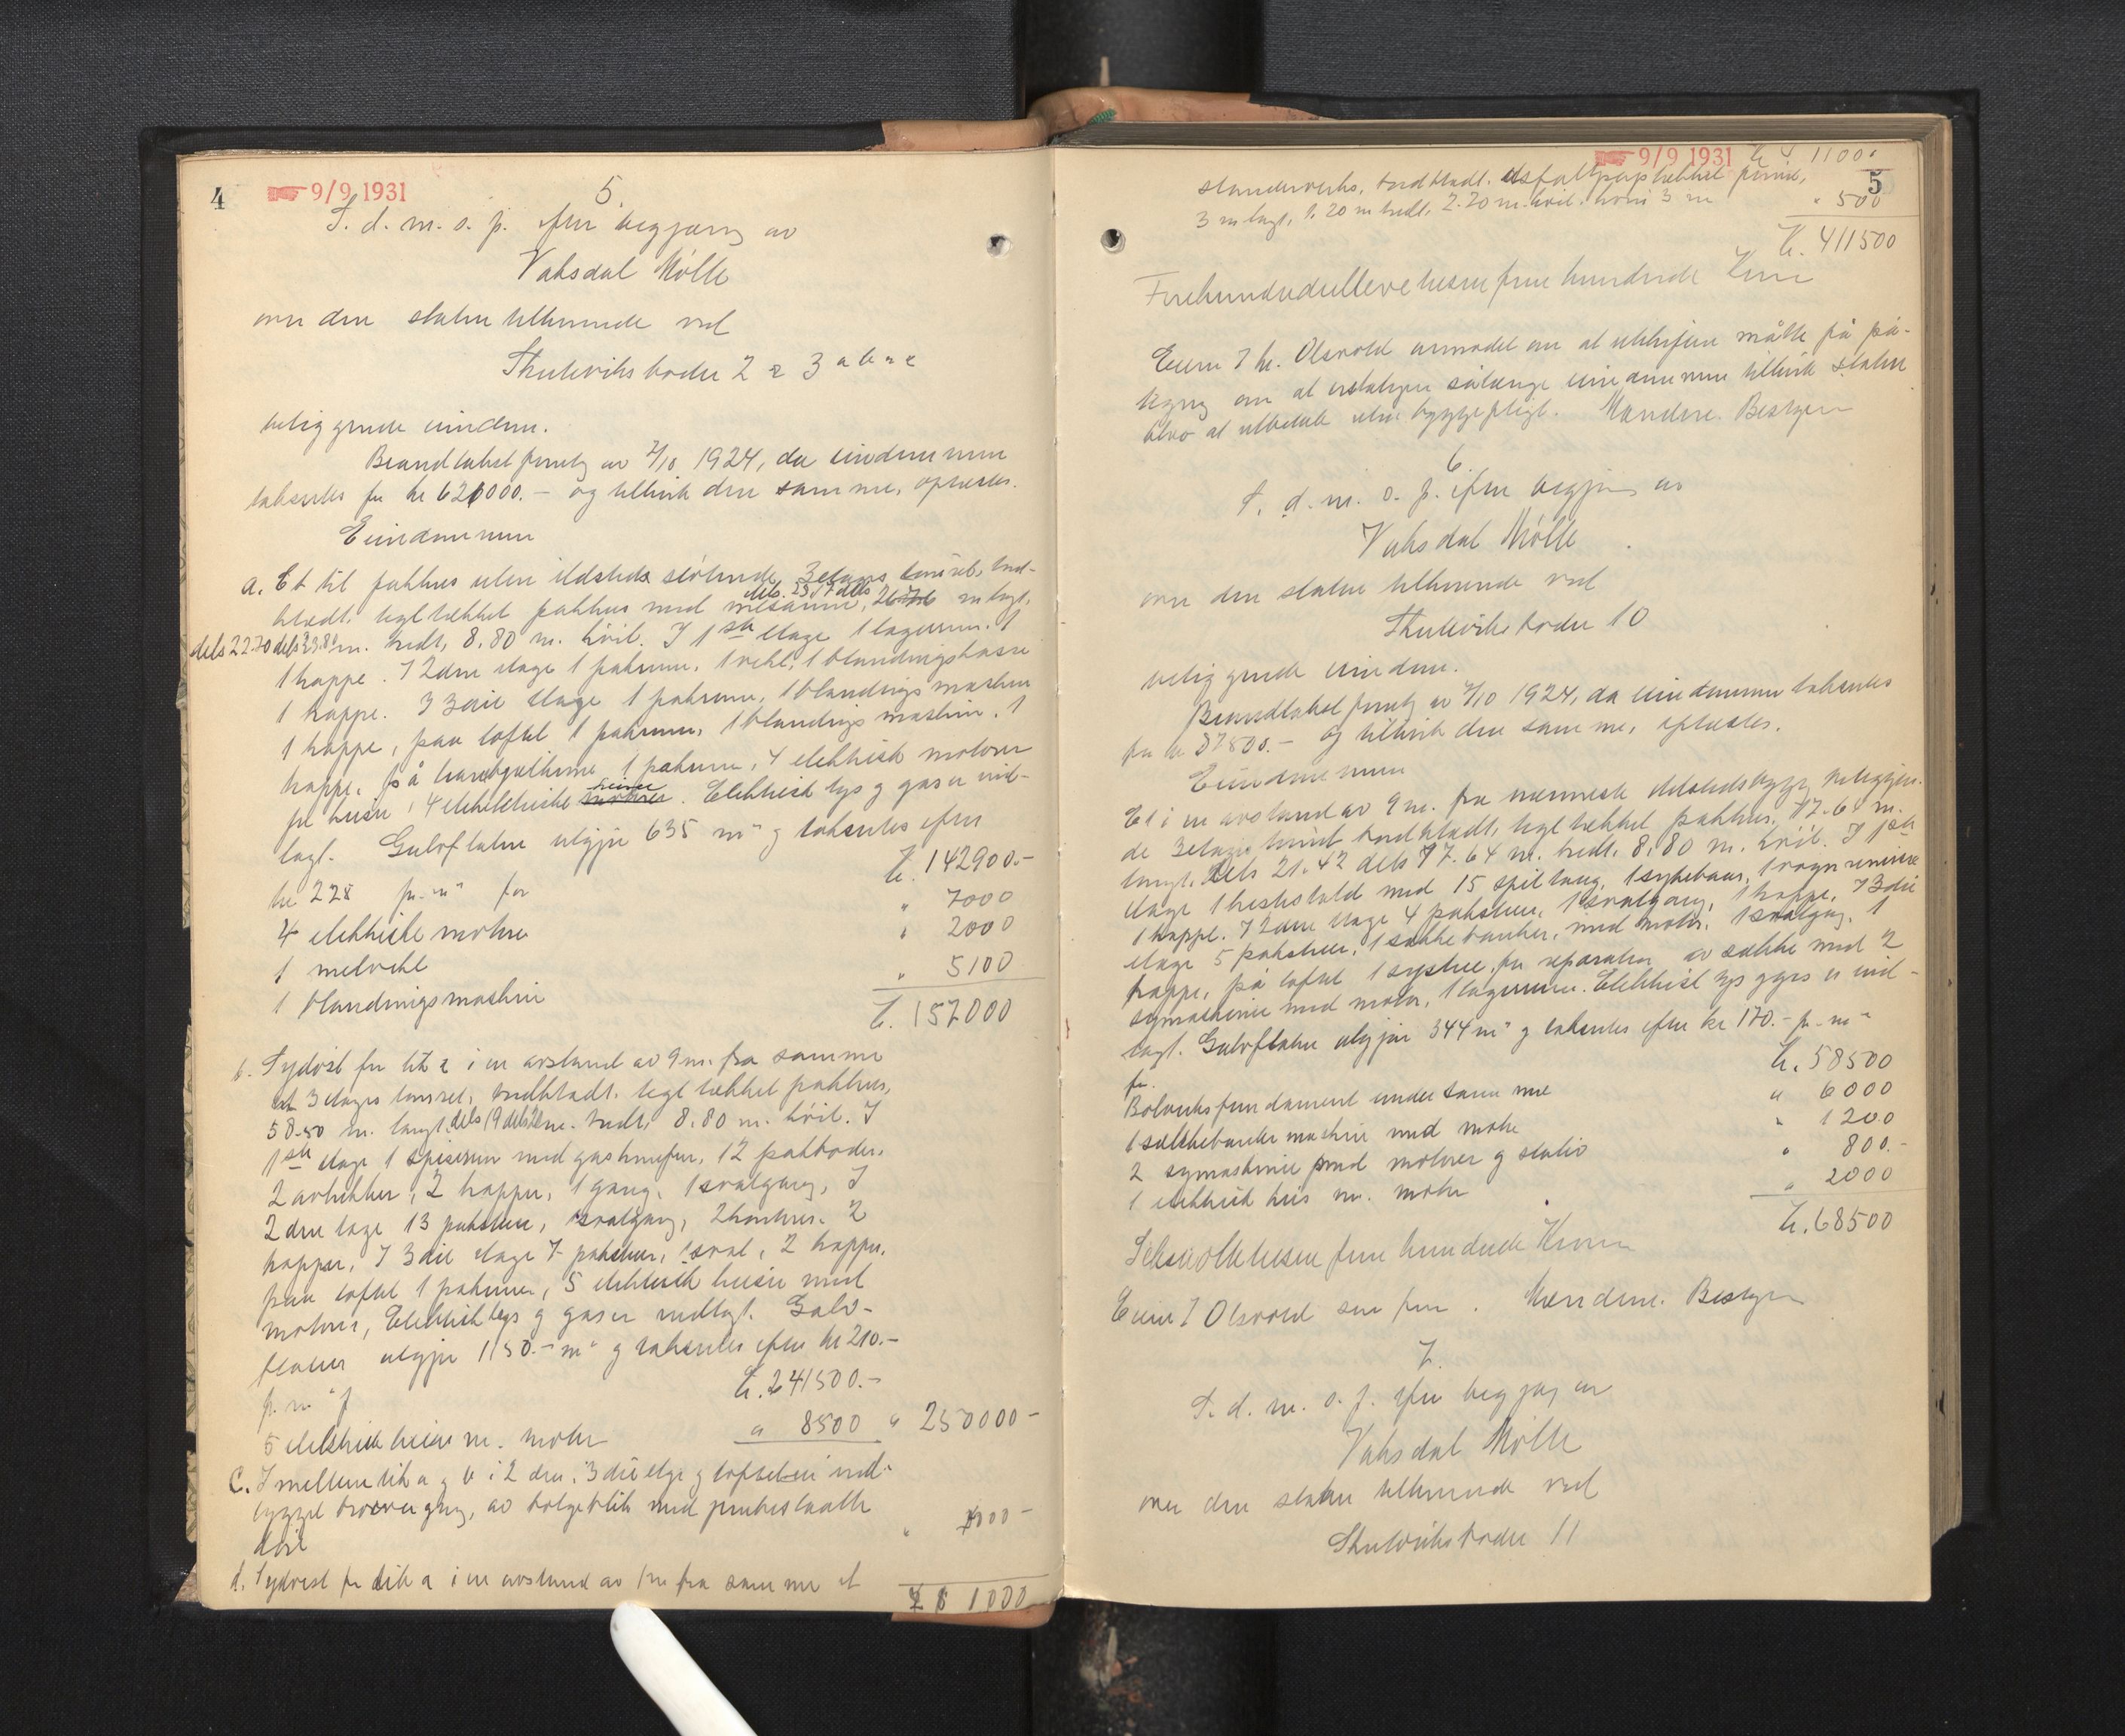 4
9/9 1931
5.
S. d. m. o. p. efter begjæring av
Vaksdal Mølle
over den staten tilhørende ved
Skuteviksboder 2 & 3 a b & c
beliggende eiendom.
Brandtakst forretn av 7/10 1924, da eiendommen
takseres for kr 621000.- og tillik den samme, oplæstes.
Eiendommen
a. Et til pakhus uten ildsted 3etages tømret, bord-
klædt. tegltækket pakhus med 26.70 m langt,
dels 22.70 dels 23.80 m. bredt, 8.80 m. høit. I 1ste etage 1 lagerrum. 1
1 trappe. I 2den etage 1 pakrum, 1 vekt, 1 blandingskasse
1 trappe. I 3die etage 1 pakrum, 1 blandings maskin
1 trappe, paa loftet 1 pakrum, 1 blandings maskin. 1
trappe, på 1 pakrum, 4 elektrisk motorer
4 elektriske heiser. Elektrisk lys og gas er ind-
lagt. Gulvflaten utgjør 635 m² og takseres efter
kr 228 pr. m² for
kr. 142900.-
4 elektriske motorer
" 7000
1 melvekt
" 2000
1 blandingsmaskin
" 5100
kr. 157000
b. Sydøst for litr a i en avstand av 9 m. fra samme
et 3 etages tømret, bordklædt. tegltækket pakhus,
58.50 m. langt, dels 19 dels m. bredt, 8.80 m. høit. I
1ste etage 1 spiserum med gaskomfur, 12 pakboder,
2 avlukker, 2 trapper, 1 gang, 1 svalgang, I
2den etage 13 pakstuer, svalgang, 2 kontorer. 2
trapper, I 3die etage 7 pakstuer, 1 sval, 2 trapper.
paa loftet 1 pakrum, 5 elektrisk heiser med
motorer, Elektrisk lys og gas er indlagt. Gulv-
flaten utgjør 1150.- m² og takseres efter kr 210.-
pr. m² f
kr. 241500.-
5 elektrisk heiser m. motor
" 8500 " 250000-
C. Imellem litr a og b i 2den, 3die etge og loftet er ind-
bygget broovergang, av bølgeblik med
dør
" -
d. Sydvest for litr a i en avstand av 1 m fra samme et
1000
9/9 1931
5
11000
stenderverks, bordklædt. asfaltpaptækket
3 m langt, 1.20 m bredt. 2.20 m. høit. 3 m
" 500
kr. 411500
Firehundredeelleve tusen fem hundrede Kroner
Eieren v/ hr. Olsvold anmodet om at utskriften måtte få på-
tegning om at erstatningen sålænge eiendommen tilhører staten
blev at utbetale uten byggepligt. Mandere. Bestyrer
6.
S. d. m. o. p. efter begjæring av
Vaksdal Mølle
over den staten tilhørende ved
Skuteviksboder 10
beliggende eiendom.
Brandtakst forretn av 7/10 1924, da eiendommen takseres
for kr 87800.- og tillik den samme, oplæstes.
Eiendommen
Et i en avstand av 9 m. fra nærmeste ildstedsbygg beliggen-
de 3etages tømret bordklædt, tegltækket pakhus, 17.60 m.
langt, dels 21.42 dels 17.64 m. bredt, 8.80 m. høit. I 1ste
etage 1 hestestald med 15 spiltaug, 1 sykebaas, 1 vognremisse
1 trappe. I 2den etage 4 pakstuer, 1 svalgang, 1 trappe, I 3die
etage 5 pakstuer, 1 sækkebanker, med motor, 1 svalgang, 1
trappe, på loftet 1 systue for reparation av sække med 2
symaskiner med motor, 1 lagerrum. Elektrisk lys og gas er ind-
lagt. Gulvflaten utgjør 344 m² og takseres efter kr 170.- pr. m²
for
kr. 58500
Bolverksfundament under samme
" 6000
1 sækkebanker maskin med motor
" 1200
2 symaskiner med motorer og stativ
" 800.-
1 elektrisk heis m. motor
" 2000
kr. 68500
Seksti otte tusen fem hundrede Kroner
Eieren v/ Olsvold som før. Mandere. Bestyrer
7.
S. d. m. o. p. efter begjæring av
Vaksdal Mølle
over den staten tilhørende ved
Skuteviksboder 11